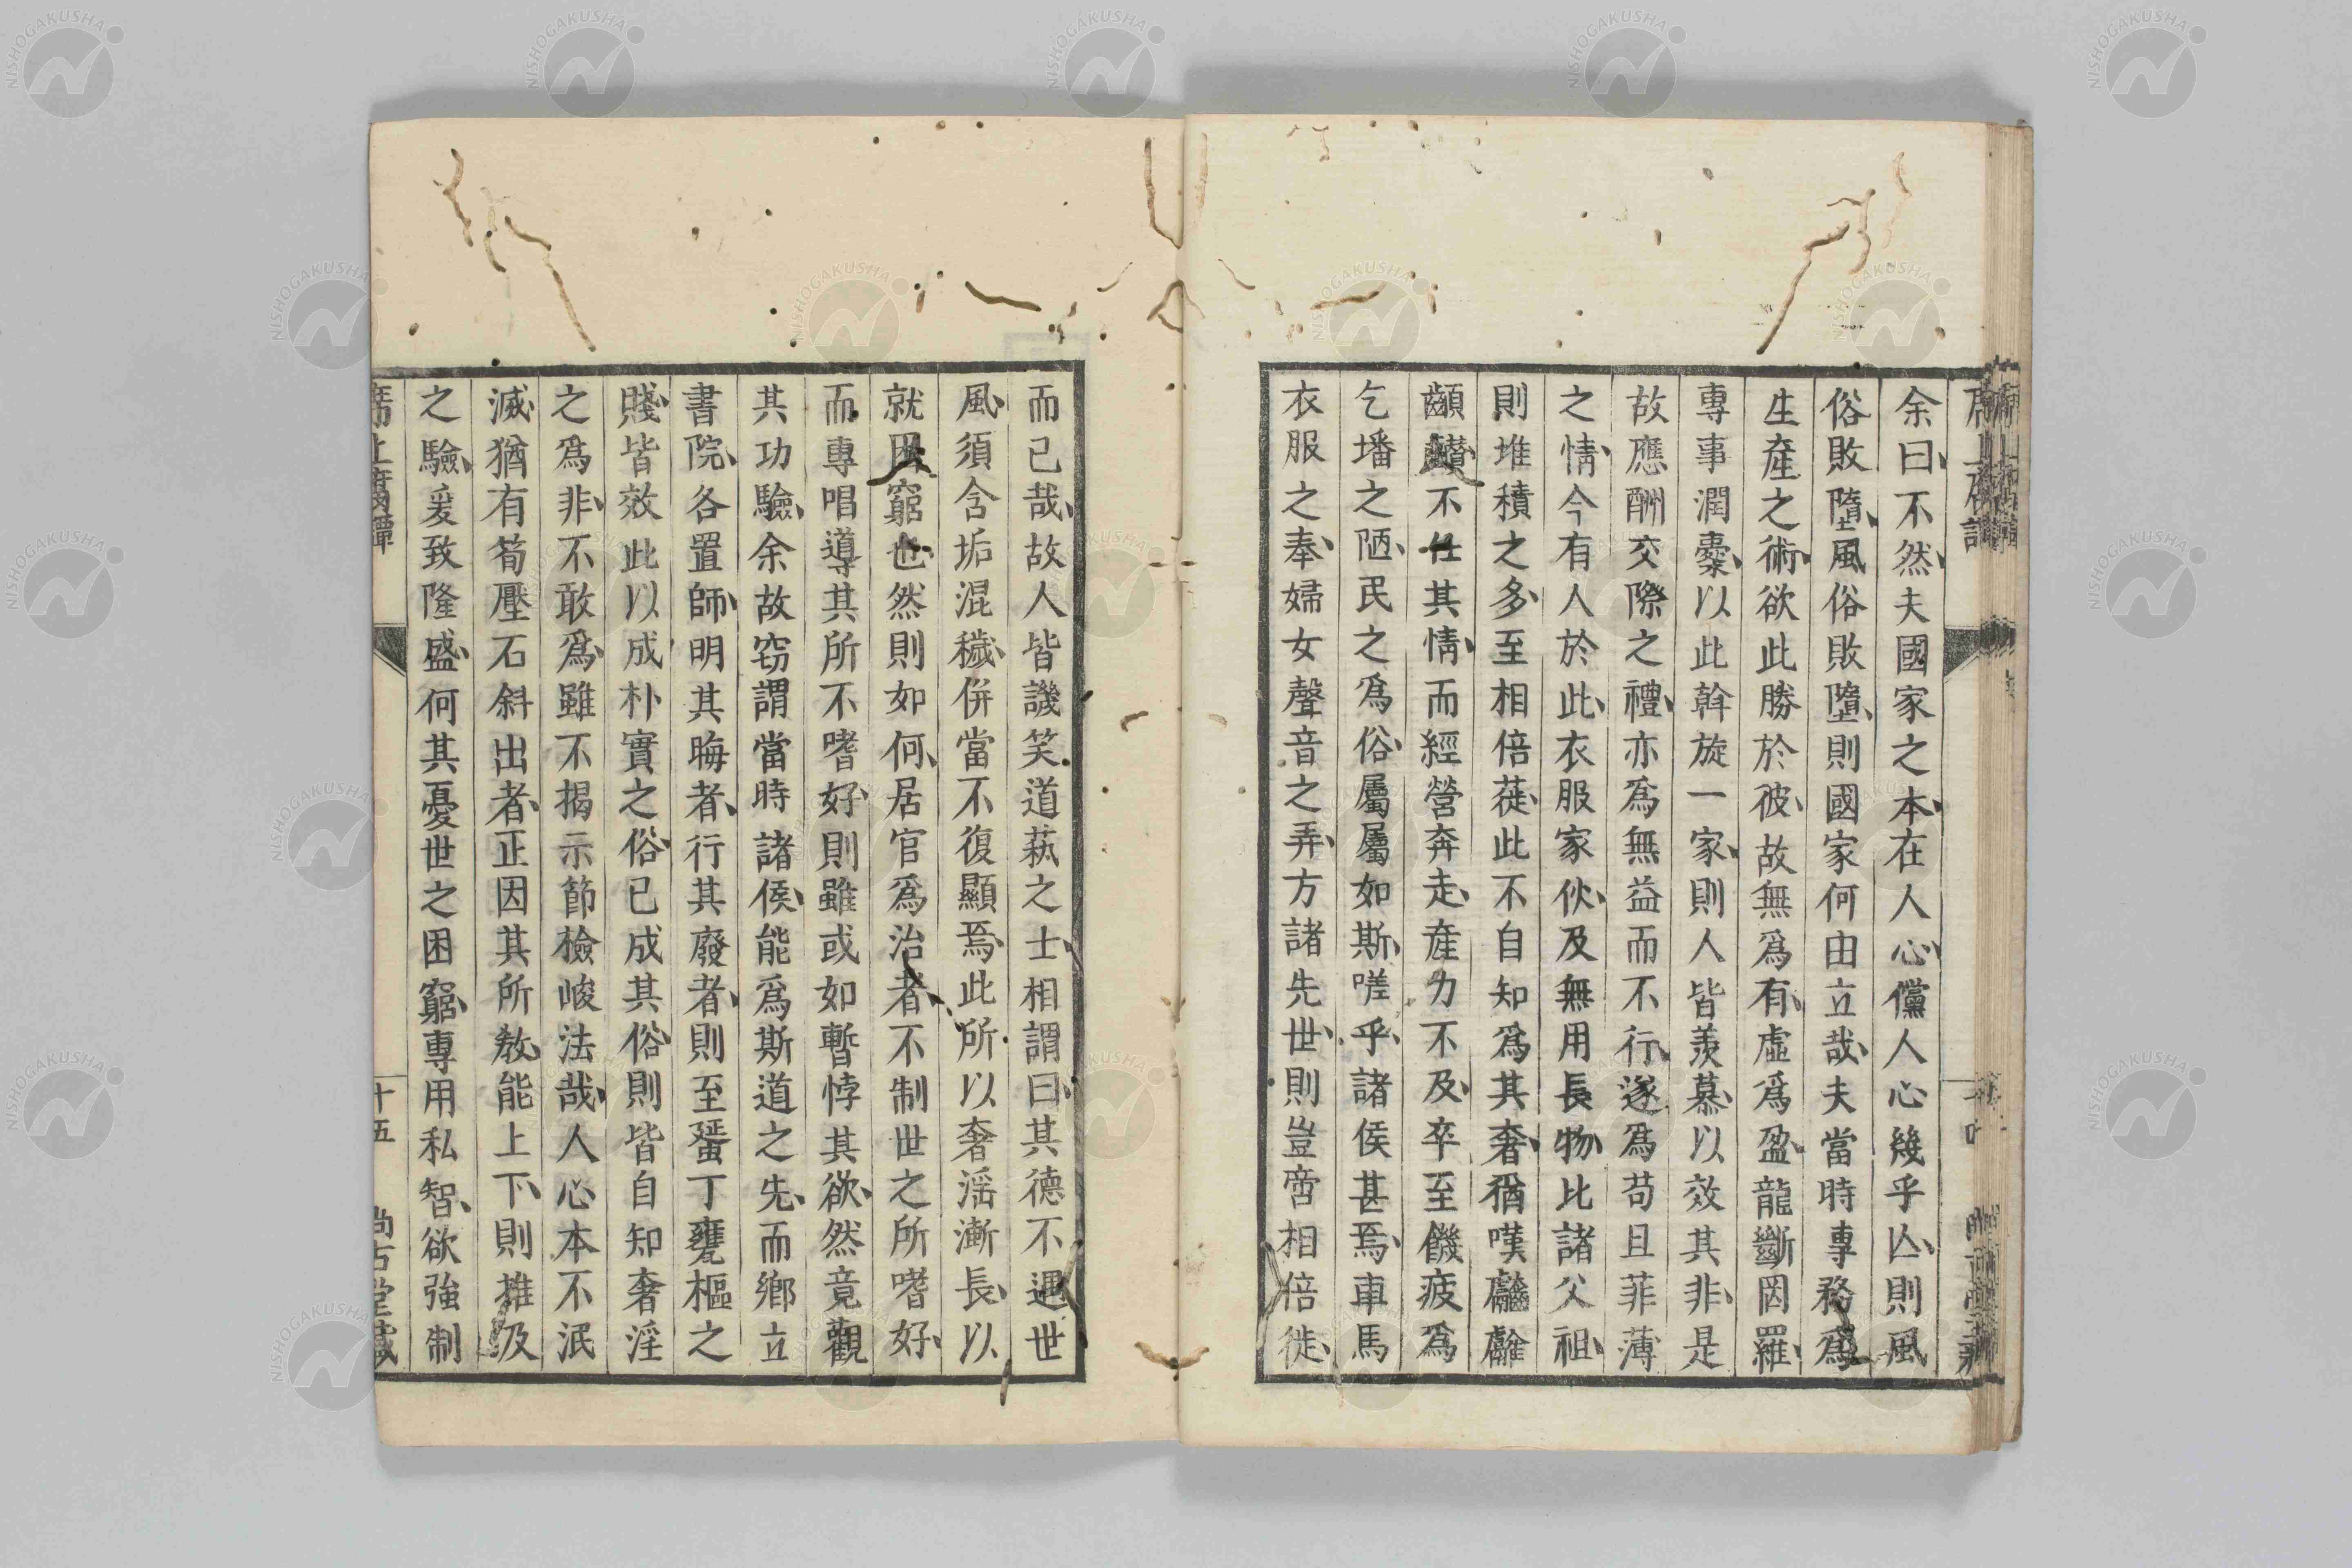 余曰、不然、夫國家之本、在人心、儻人心幾乎亾、則風
俗敗隳、風俗敗墮、則國家何由立哉、夫當時專務爲
生產之術、欲此勝於彼、故無爲有、虛爲盈、龍斷罔羅、
專事潤橐、以此斡旋一家、則人皆羨慕、以效其非、是
故應酬交際之禮、亦爲無益而不行、遂爲苟且菲薄
之情、今有人於此、衣服家伙、及無用長物、比諸父祖、
則堆積之多、至相倍蓰、此不自知爲其奢、猶嘆
不任其情、而經營奔走、產力不及、卒至饑疲爲
乞墦之陋、民之爲俗、屬屬如斯、嗟乎、諸侯甚焉、車馬
衣服之奉、婦女聲音之弄、方諸先世、則豈啻相倍徙、
而已哉、故人皆譏笑道萟之士、相謂曰、其德不遇世
風、須含垢混穢、併當不復顯焉、此所以奢淫漸長、以
就困窮也、然則如何、居官爲治者、不制世之所嗜好、
而專唱導其所不嗜好、則雖或如暫悖其欲、然竟觀
其功驗、余故窃謂當時諸侯、能爲斯道之先、而鄉立
書院、各置師、明其晦者、行其廢者、則至蜑丁甕樞之
賤、皆效此以成朴實之俗、已成其俗、則皆自知奢淫
之爲非、不敢爲、雖不揭示節檢峻法哉、人心本不泯
滅、猶有筍壓石斜出者、正因其所教、能上下、則推及
之驗、爰致隆盛、何其憂世之困窮、專用私智、欲強制
席上腐譚
十五
尚古堂藏
NISHOGAKUSHA